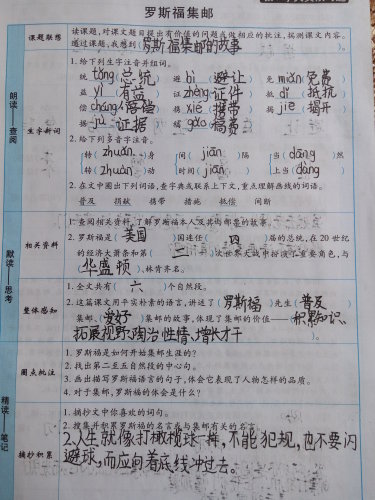 罗斯福集邮
课题联想
读课题,对课文题目提出有价值的问题或做相应的批注,揣测课文内容。
通过课题,我想到(罗斯福集邮的故事)
朗读——查阅
生字新词
1.给下列生字注音并组词。
统 tǒng 总统 避 bì 避让 免 miǎn 免费
益 yì 有益 证 zhèng 证件 抵 dǐ 抵抗
偿 cháng 偿 携 xié 携带 揭 jiē 揭开
据 jù 证据 稿 gǎo 稿费
2.给下列多音字注音。
转(zhuǎn)身 间(jiān)隔 当(dāng)然
转(zhuàn) 时间(jiān) 上当(dàng)
2.在文中圈出下列词语,查字典或联系上下文,重点理解画线的词语。
普及 捐献 携带 措施 抵偿 间断
默读——思考
相关资料
1.查阅相关资料,了解罗斯福本人及其与邮票的故事。
2.罗斯福是(美国)国连任(四)届的总统,在20世纪
的经济大萧条和第(二)次世界大战中扮演了重要角色,与
(华盛顿)、林肯齐名。
整体感知
1.全文共有(六)个自然段。
2.这篇课文用中实朴素的语言,讲述了(罗斯福)先生(普及
集邮。(爱好)集邮的故事,体现了集邮的价值——(积累知识、
拓展视野、陶治性情、增长才干)。
精读——笔记
圈点批注
1.罗斯福是如何开始集邮生涯的?
2.找出第二至五自然段的中心句。
3.画出描写罗斯福语言的句子,体会它表现了人物怎样的品质。
4.对于集邮,罗斯福的体会是什么?
摘抄积累
1.摘抄文中你喜欢的词句。
2.搜集并积累罗斯福的名言或与集邮有关的名言。
2.人生就像打橄榄球一样,不能犯规,也不要闪
避球,而应向着底线冲过去。